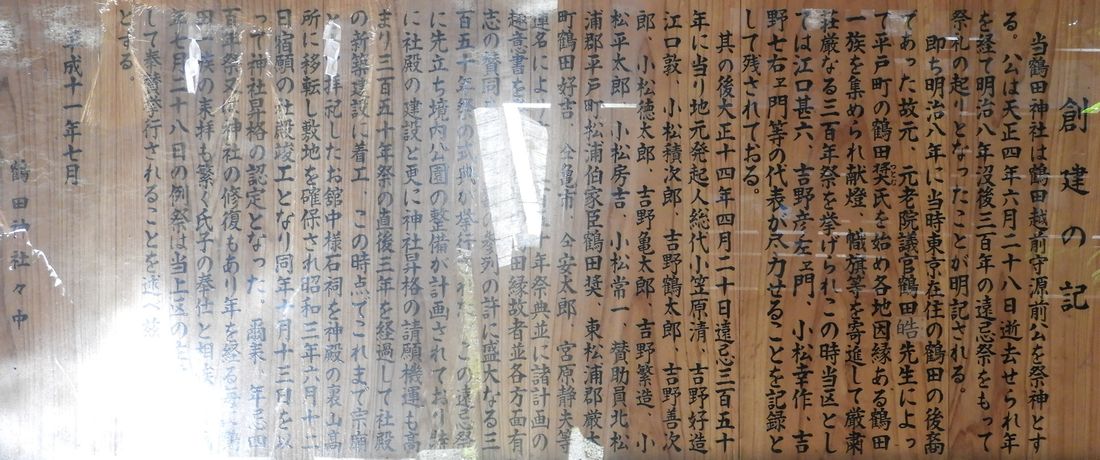 創建の記
当鶴田神社は鶴田越前守源前公を祭神とす
る。公は天正四年六月二十八日逝去せられ年
を経て明治八年沼後三百年の遠忌祭をもって
祭礼の起りとなったことが明記される。
即ち明治八年に当時東京在住の鶴田の後裔
であった故元、元老院議官鶴田皓先生によっ
て平戸町の鶴田奨氏を始め各地因縁ある鶴田
一族を集められ献燈、幟旗等を寄進して厳粛
荘厳なる三百年祭を挙げられこの時当区とし
ては江口甚六、吉野彦左ヱ門、小松幸作、吉
野七右ヱ門等の代表が尽力せることを記録と
して残されておる。
其の後大正十四年四月二十日遠忌三百五十
年に当り地元発起人総代小笠原清、吉野好造
江口敦、小松積次郎、吉野鶴太郎、吉野善次
郎、小松徳太郎、吉野亀太郎、吉野繁造、小
松平太郎、小松房吉、小松常一、賛助員北松
浦郡平戸町松浦伯家臣鶴田奨 東松浦郡厳木
町鶴田好吉、仝亀市、仝安太郎、宮原静夫等
連名によ 年祭典並に諸計画の
趣意書を 田縁故者並各方面有
志の賛同 参列の許に盛大なる三
百五十年祭の式典が挙行 この遠忌祭
に先立ち境内公園の整備が計画されており
に社殿の建設と更に神社昇格の請願機運も高
まり三百五十年祭の直後三年を経過して社殿
の新築建設に着工、この時点でこれまで宗廟
と拝祀したお館中様石祠を神殿の裏山高
所に移転し敷地を確保され昭和三年六月十二
日宿願の社殿竣工となり同年十月十三日を以
って神社昇格の認定となった。爾来、年忌四
百年祭又神社の修復もあり年を経る
田一族の来拝も繁く氏子の奉仕と相
年七月二十八日の例祭は当上区の
して奉賛挙行されることを述べ
とする。
平成十一年七月
鶴田神社々中